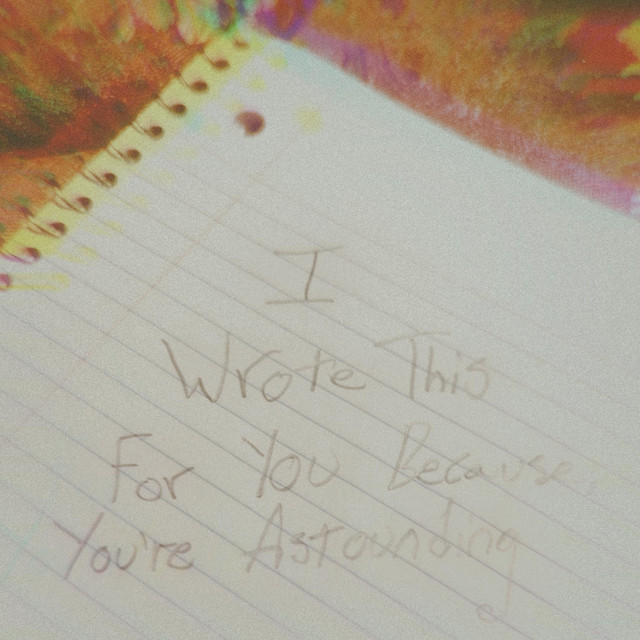 I
Wrote This
For You Because
You're Astounding